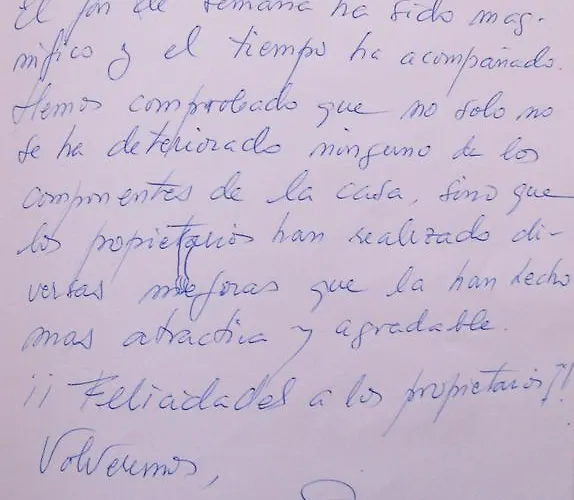 El fin de semana ha sido mag-
nífico y el tiempo ha acompañado.
Hemos comprobado que no solo no
se ha deteriorado ninguno de los
componentes de la casa, sino que
los propietarios han realizado di-
versas mejoras que la han hecho
mas atractiva y agradable.
¡¡ Felicidades a los propietarios!!
Volveremos,